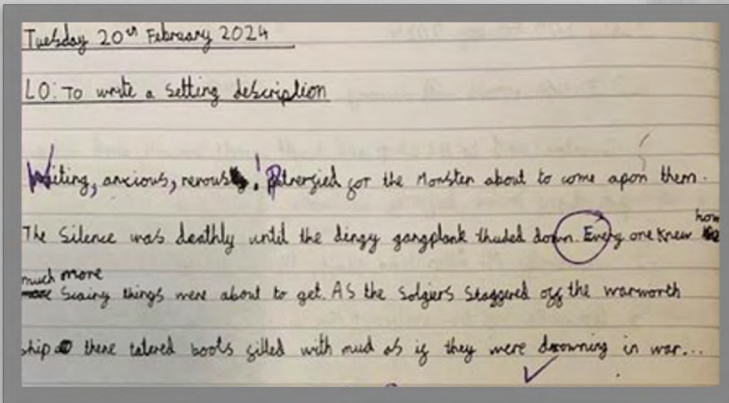 Tuesday 20th February 2024
LO: To write a setting description
Waiting, anxious, nerous! Petrergied for the Monster about to come apon them.
The Silence was deathly until the dingy gangplank thuded down. Every one knew how
much more
Scairy things were about to get. AS the Solgiers Staggered off the warworth
ship there tatered boots filled with mud as if they were drowning in war...